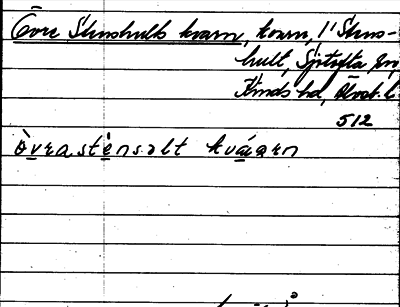 Övre Stenshults kvarn, kvarn, i Stens-
hult, Sjötofta sn,
Kinds hd, Älvsb. l.
512
òvrasténsalt kváarn